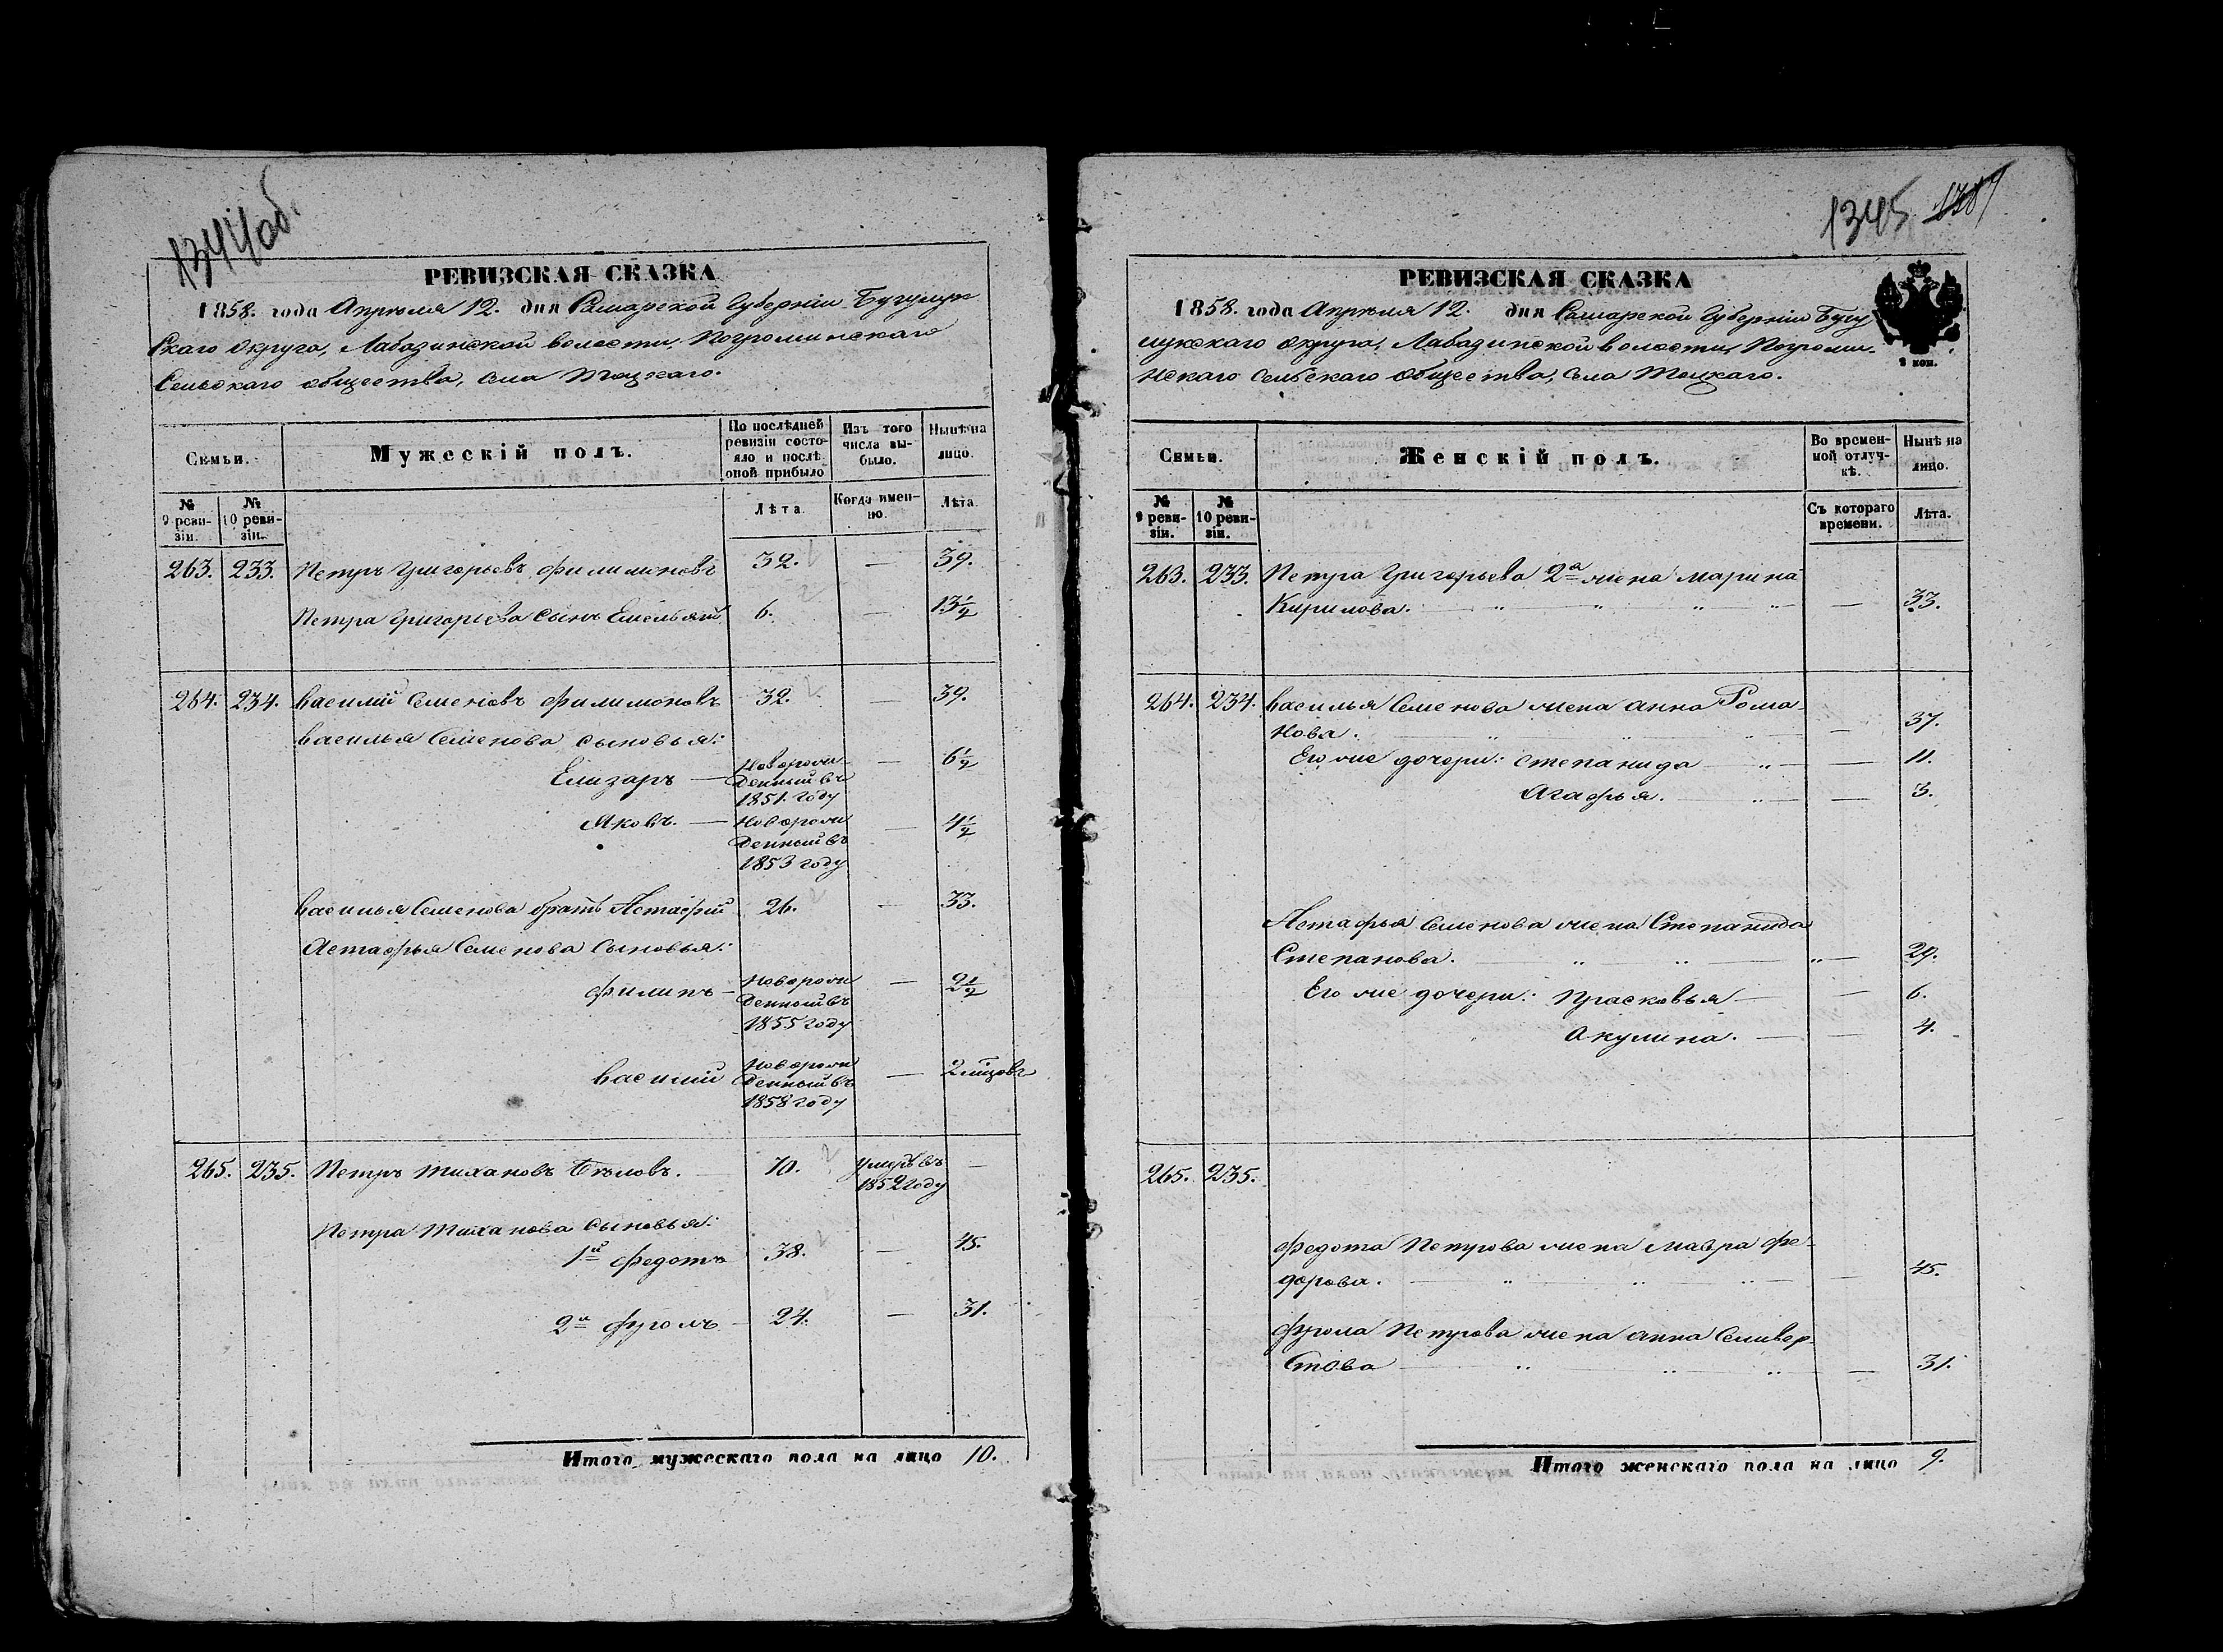 1344об.
РЕВИЗСКАЯ СКАЗКА
1858. года Апрѣля 12. дня Самарской Губерніи Бугурук
Скаго округа, Лабазинской волости, Погроминскаго
Сельскаго общества, села Тоцкаго.
Семьи. Мужескій полъ. По послѣдней ревизіи состояло и послѣ оной прибыло Изъ того числа выбыло. Нынѣ на лицо.
№ 9 ревизіи. № 10 ревизіи. Лѣта. Когда именно. Лѣта.
263. 233. Петръ Григорьевъ Филимоновъ 32. — 39.
Петра Григорьева сынъ Емельянъ 6. — 13½
264. 234. Василій Семеновъ Филимоновъ 32. — 39.
Василья Семенова сыновья:
Елизаръ — Новорожденный въ 1851. году — 6½
Яковъ. — Новорожденный въ 1853 году — 4½
Василья Семенова братъ Астафій 26. — 33.
Астафья Семенова сыновья:
Филипъ — Новорожденный въ 1855 году — 2½
Василій Новорожденный въ 1858 году — 2 місцовъ
265. 235. Петръ Тихановъ Бѣловъ. 70. умеръ въ 1852 году —
Петра Тиханова сыновья:
1й Федотъ 38. — 45.
2й Фролъ 24. — 31.
Итого мужескаго пола на лицо 10.
1345 1787
РЕВИЗСКАЯ СКАЗКА
1858. года Апрѣля 12. дня Самарской Губерніи Бугу
рукскаго округа, Лабазинской волости, Погроми-
нскаго Сельскаго общества, Села Тоцкаго.
Семьи. Женскій полъ. Во временной отлучкѣ. Нынѣ на лицо.
№ 9 ревизіи. № 10 ревизіи. Съ котораго времени. Лѣта.
263. 233. Петра Григорьева 2а жена Марина
Кирилова. — 33.
264. 234. Василья Семенова жена Анна Рома
нова. — 37.
Его же дочери: Степанида — 11.
Агафья. — 3.
Астафья Семенова жена Степанида
Степанова. — 29.
Его же дочери: Прасковья — 6.
Акулина. — 4.
265. 235.
Федота Петрова жена Мавра Фе-
дорова. — 45.
Фрола Петрова жена Анна Селивер-
стова — 31.
Итого женскаго пола на лицо 9.